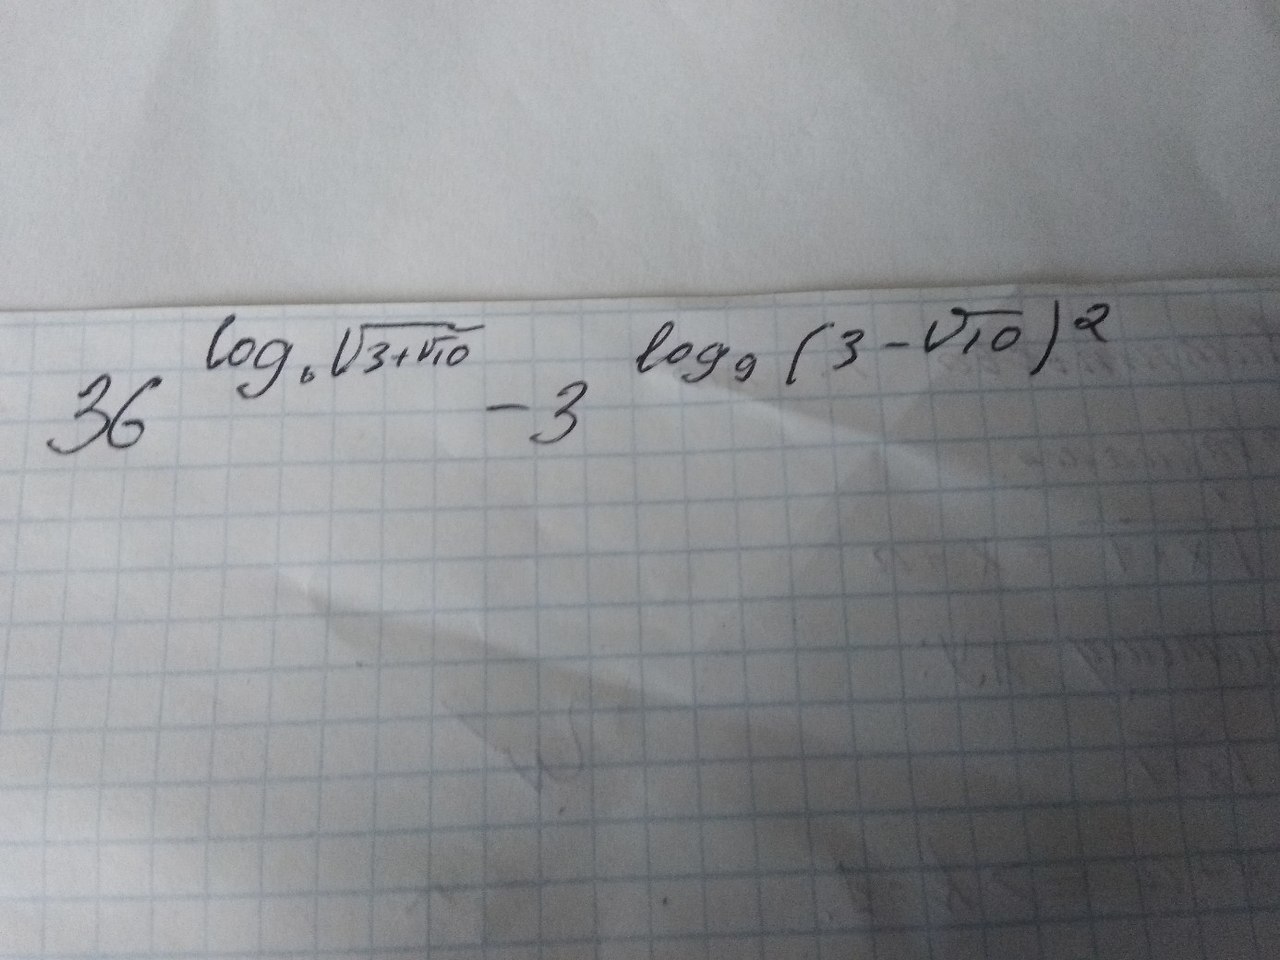 36^{log_6 √(3+√10)} - 3^{log_9 (3-√10)^2}